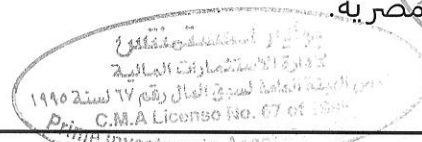 مصرية.
برايم انفستمنتس
لإدارة الاستثمارات المالية
الهيئة العامة لسوق المال رقم ٦٧ لسنة ١٩٩٥
C.M.A License No. 67 of
Prime Investments